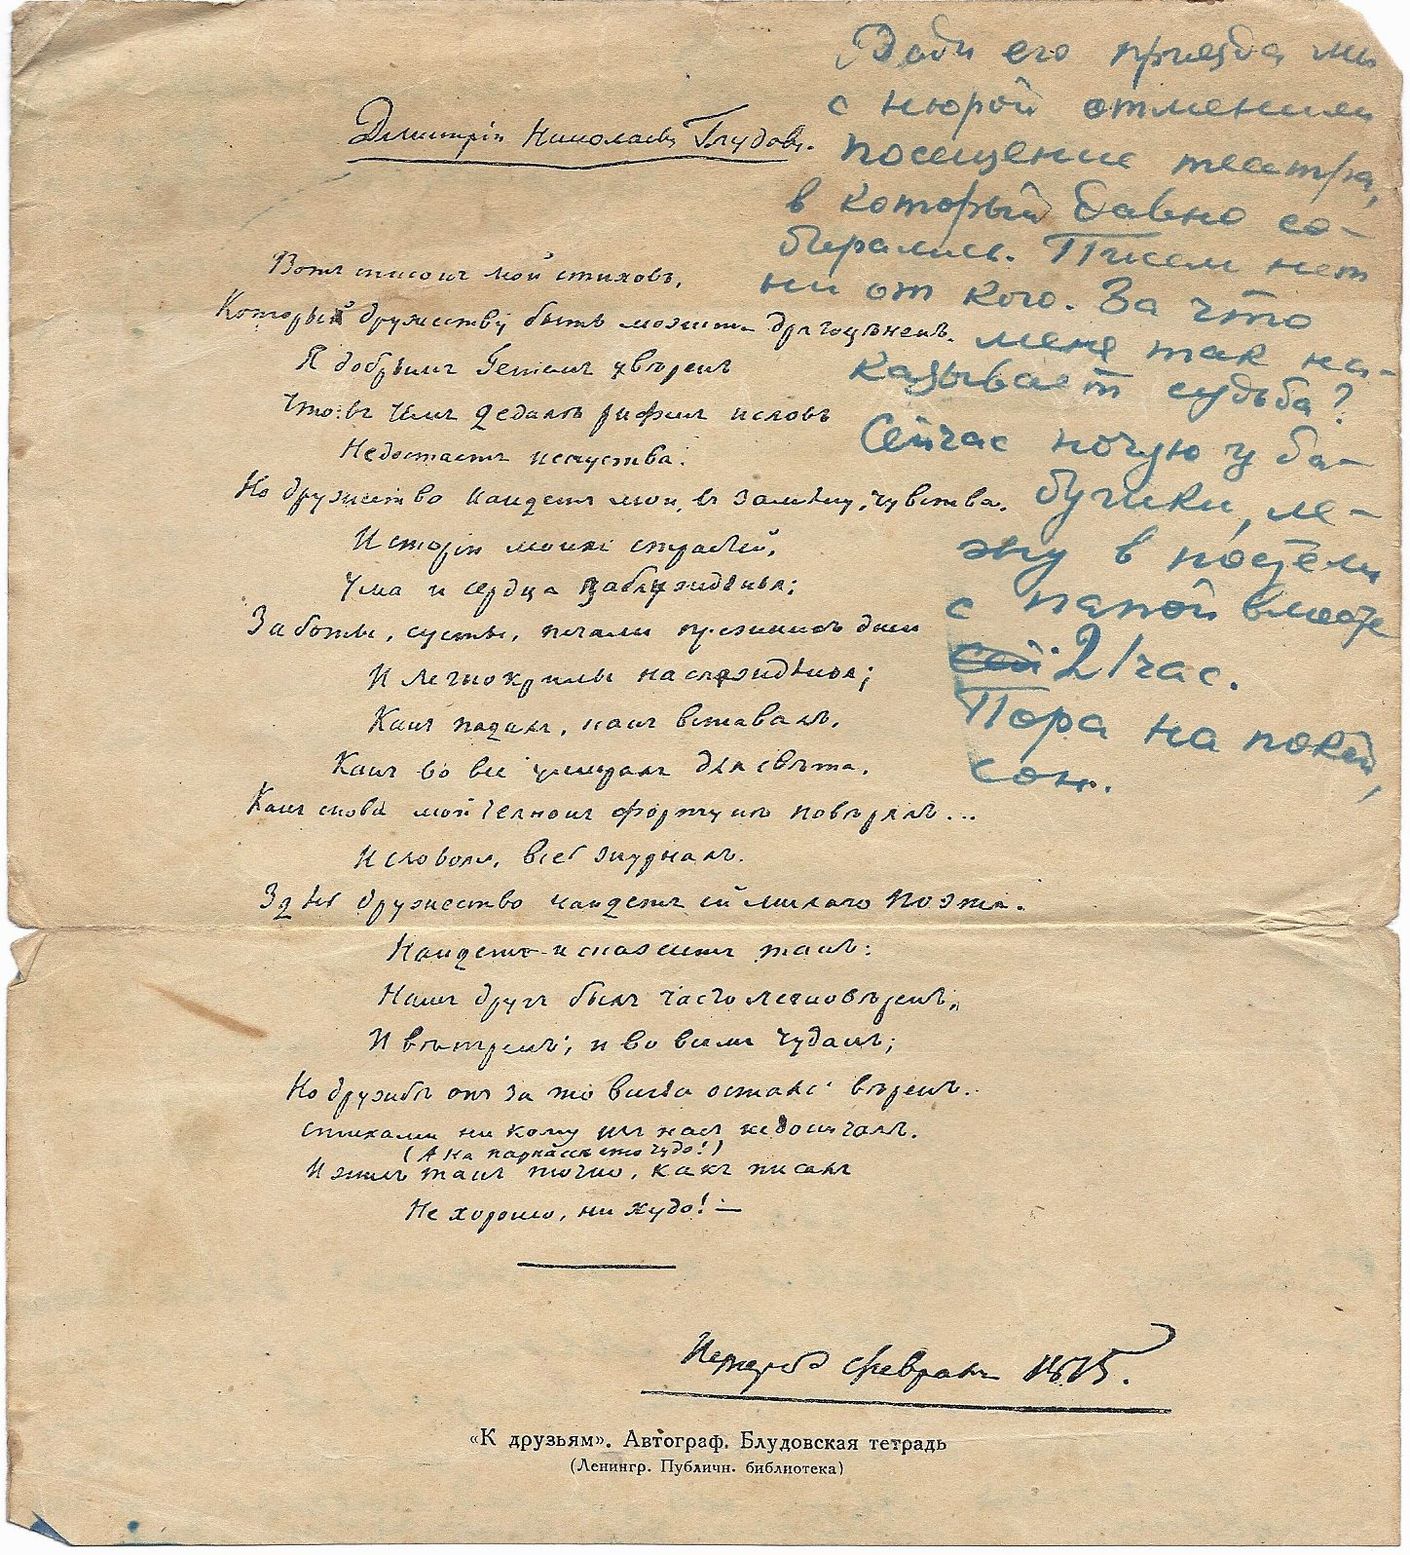 Дмитрію Николаевичу Блудову.
Вотъ списокъ мой стиховъ,
Который дружеству быть можетъ драгоцѣненъ.
Я добрымъ Геніемъ увѣренъ
Что въ семъ Дедалѣ рифмъ и словъ
Недостаетъ искуства:
Но дружество найдетъ мои, въ замѣну, чувства.
Исторію моихъ страстей,
Ума и сердца заблужденья;
Заботы, суеты, печали прежнихъ дней
И легкокрилы наслажденья;
Какъ падалъ, какъ вставалъ,
Какъ во все умиралъ для свѣта,
Какъ снова мой челнокъ фортунѣ повѣрялъ...
И словомъ, весь журналъ
Здѣсь дружество найдетъ
Найдетъ и скажетъ такъ:
Нашъ другъ былъ часто легковѣренъ,
И вѣтренъ; и во всемъ чудакъ;
Но дружбѣ онъ за то всегда остался вѣренъ.
Стихами ни кому изъ насъ недокучалъ.
(А на парнассѣ ето чудо!)
И жилъ такъ точно, какъ писалъ
Не хорошо, ни худо! —
февраля 1815.
«К друзьям». Автограф. Блудовская тетрадь
(Ленингр. Публичн. библиотека)
Ради его приезда мы
с Нюрой отменили
посещение театра,
в который давно со-
бирались. Писем нет
ни от кого. За что
меня так на-
казывает судьба?
Сейчас ночую у ба-
бушки, ле-
жу в постели
с папой вместе
2 час.
Пора на покой,
сон.